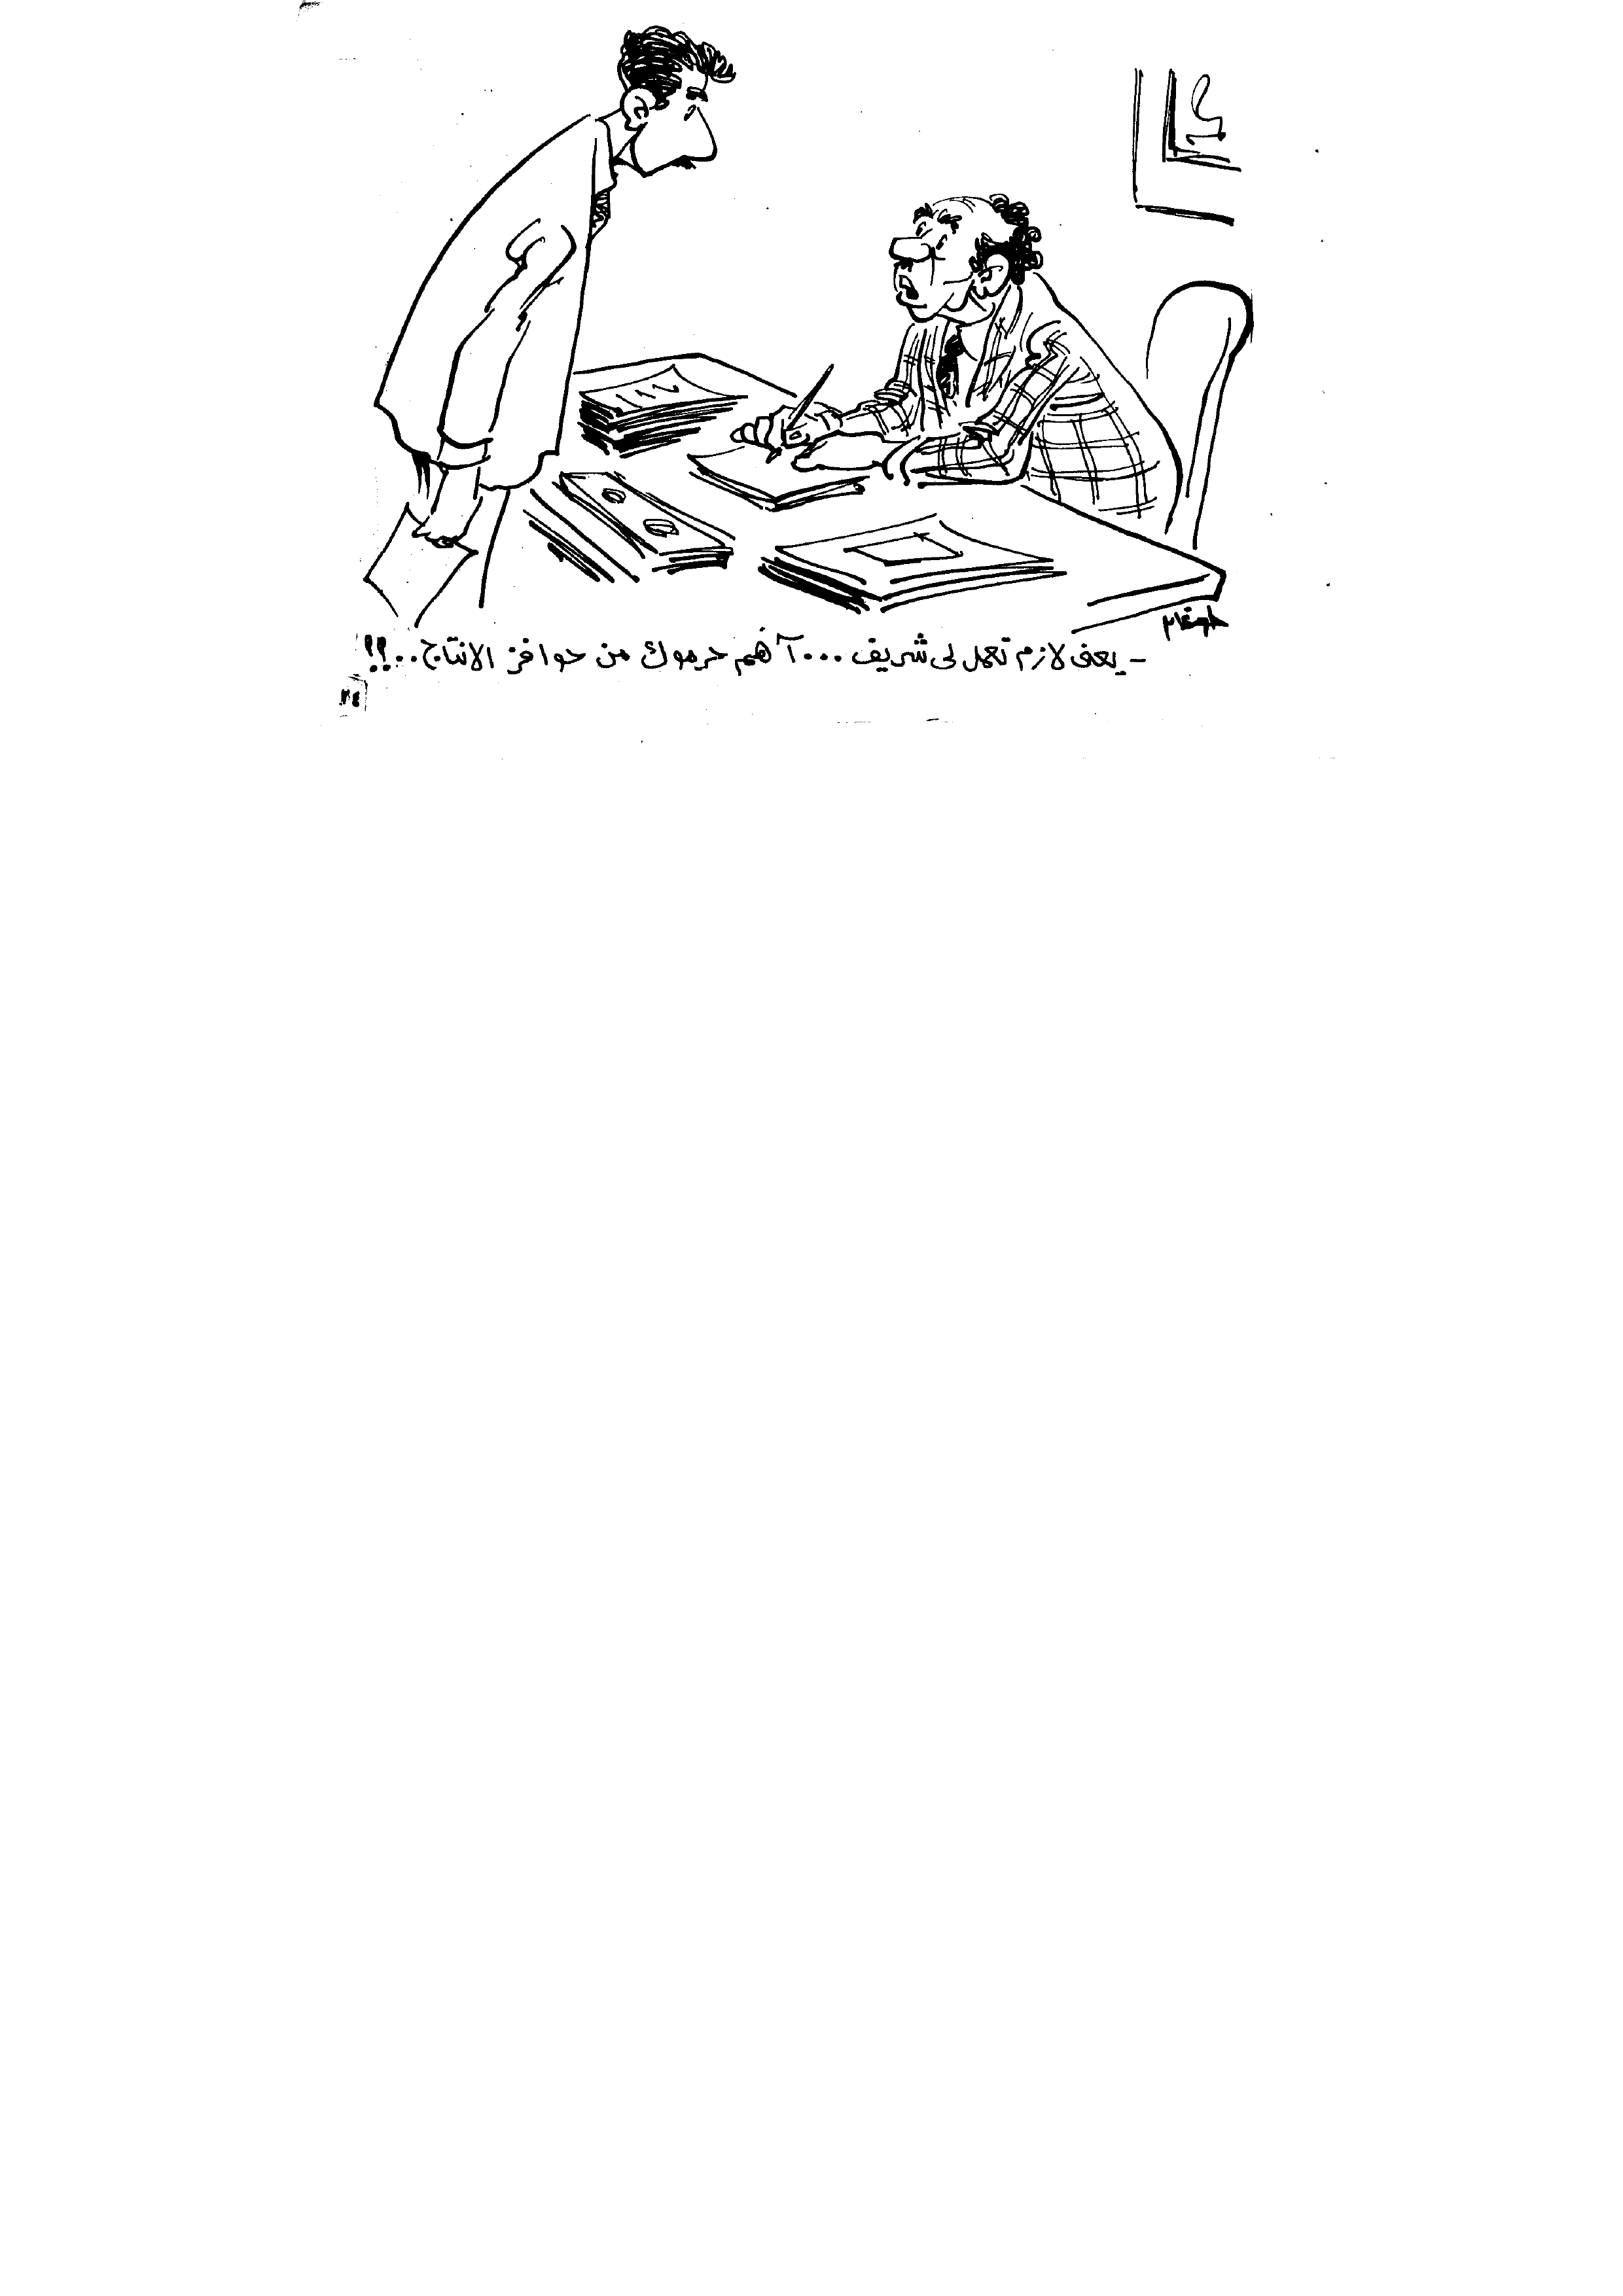 - يعنى لازم تعمل لى شريف ... آهم حرموك من حوافز الانتاج ..!!